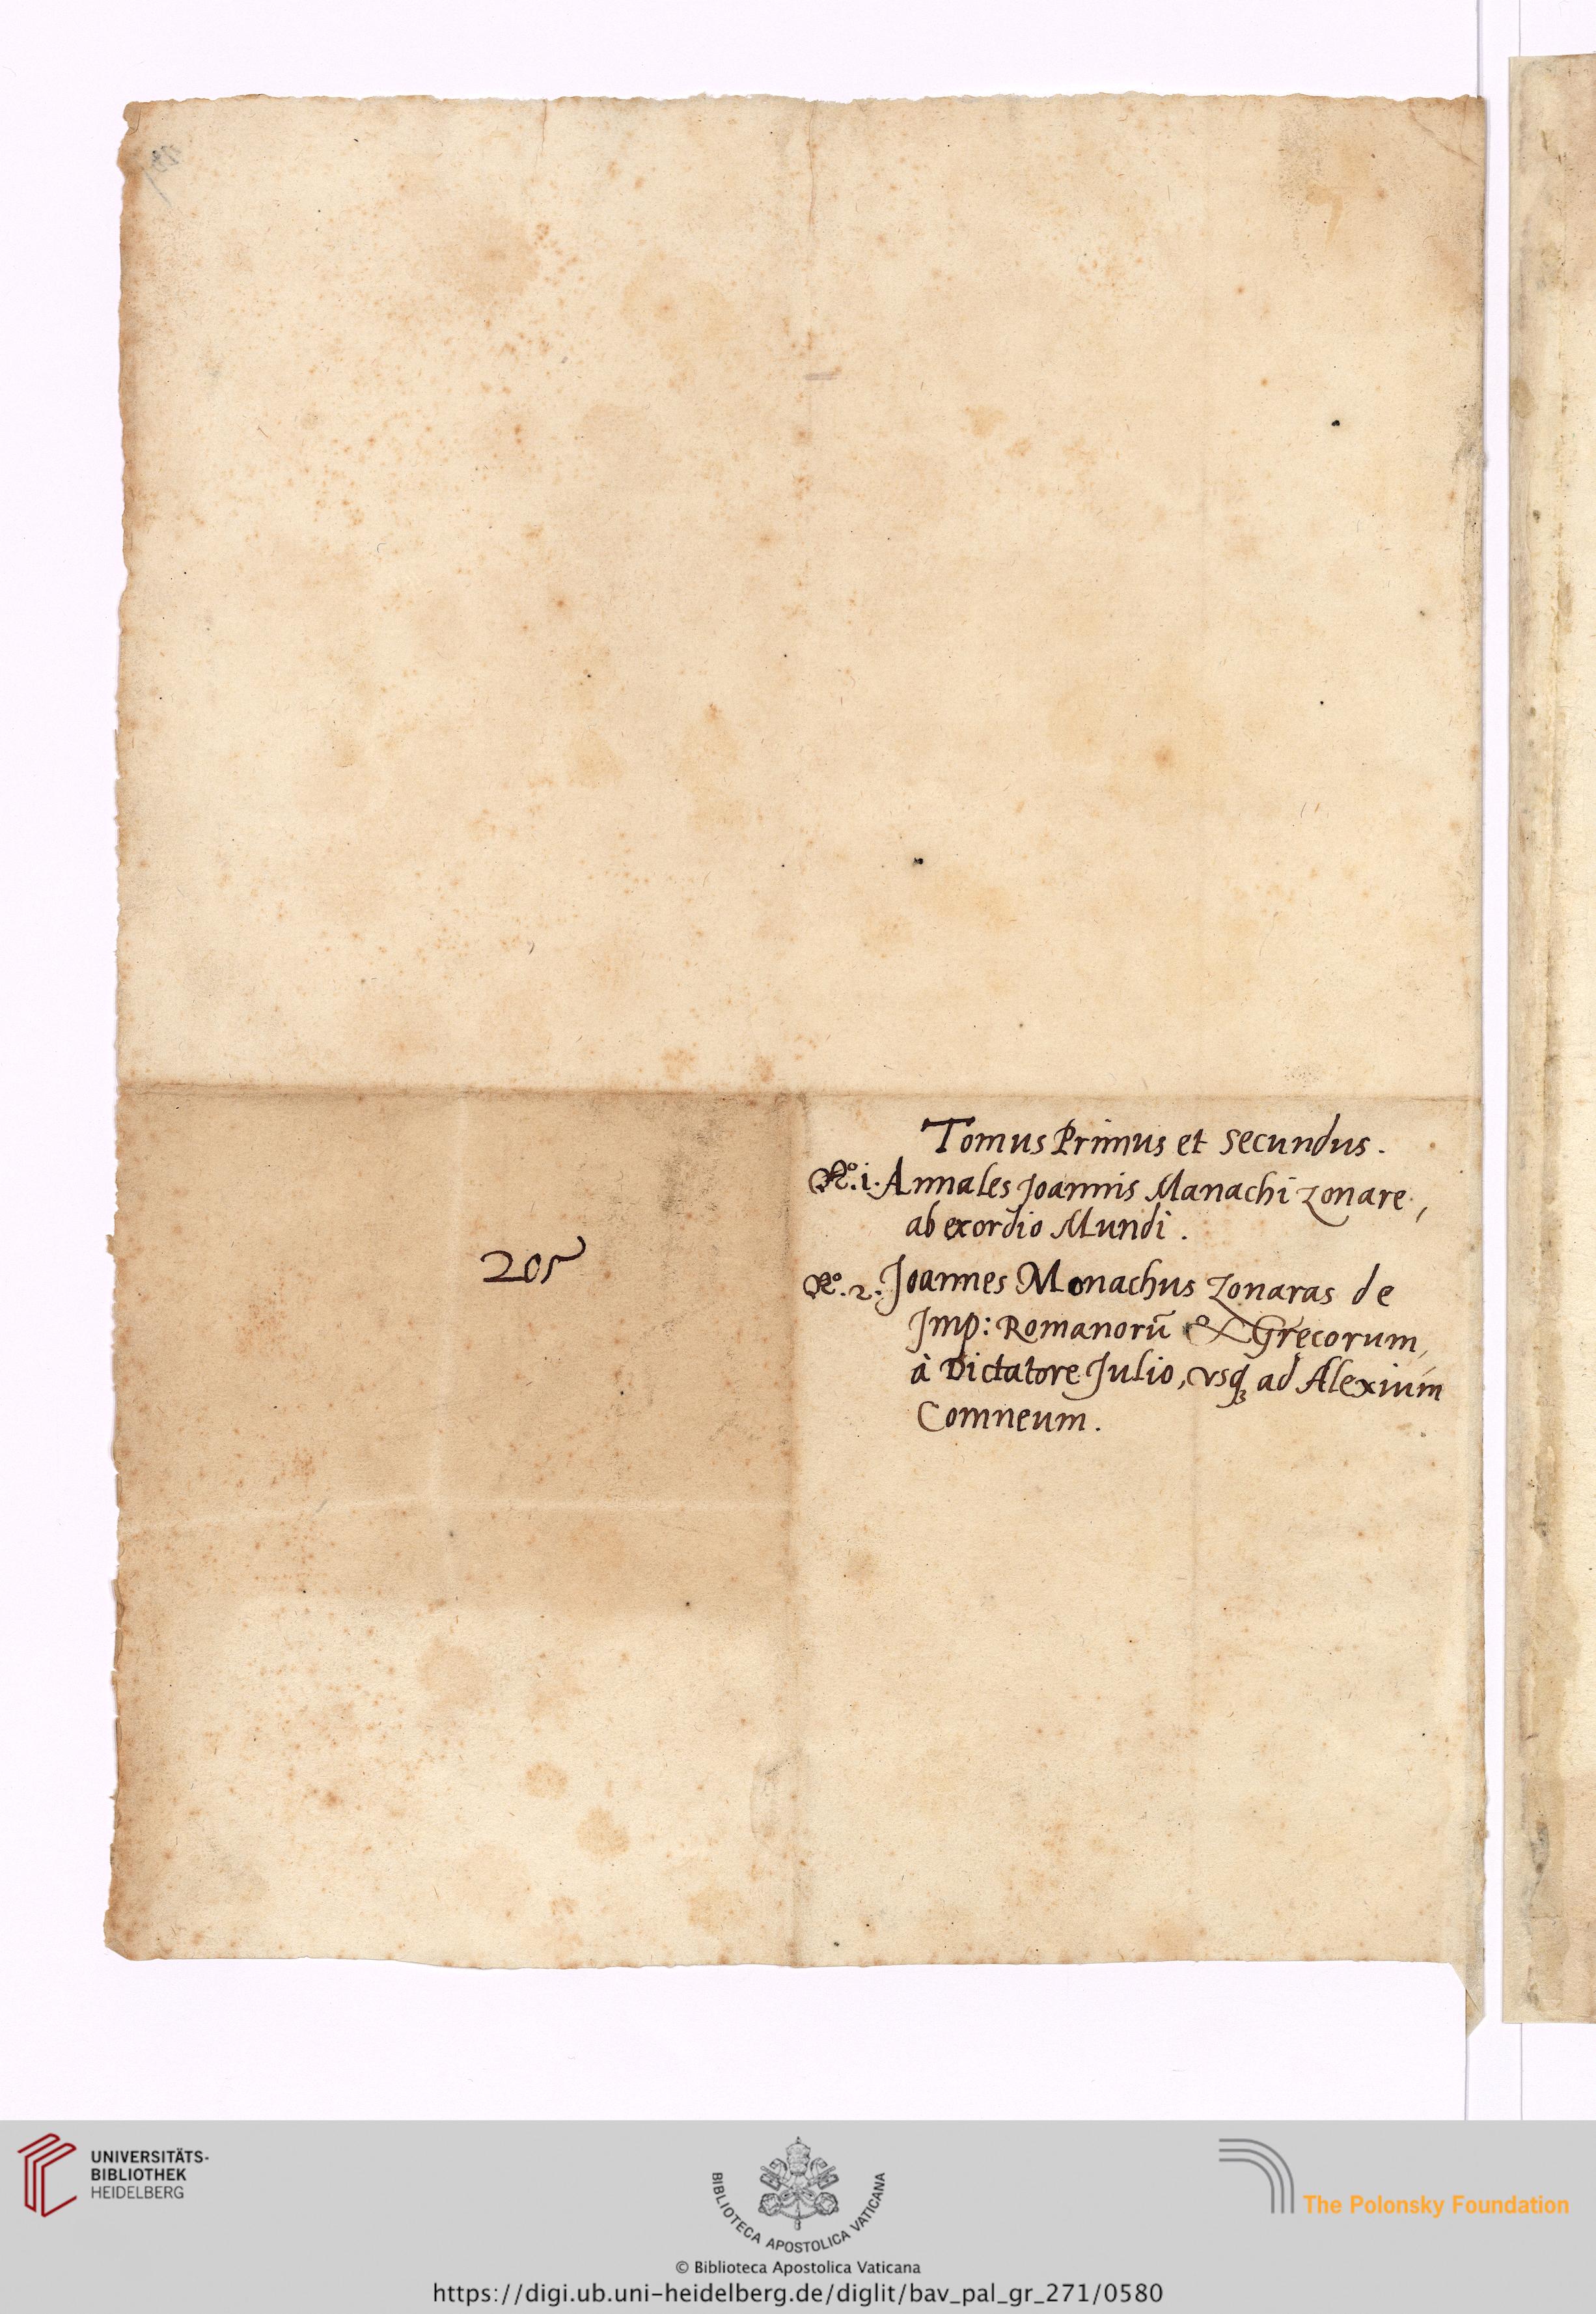 Tomus Primus et secundus.
Nº. 1. Annales Joannis Manachi Zonare,
ab exordio Mundi.
205
Nº. 2. Joannes Monachus Zonaras de
Imp: Romanorū & Gręcorum,
à Dictatore Julio, vsqꝫ ad Alexium
Comneum.
UNIVERSITÄTS-
BIBLIOTHEK
HEIDELBERG
BIBLIOTECA APOSTOLICA VATICANA
The Polonsky Foundation
© Biblioteca Apostolica Vaticana
https://digi.ub.uni-heidelberg.de/diglit/bav_pal_gr_271/0580